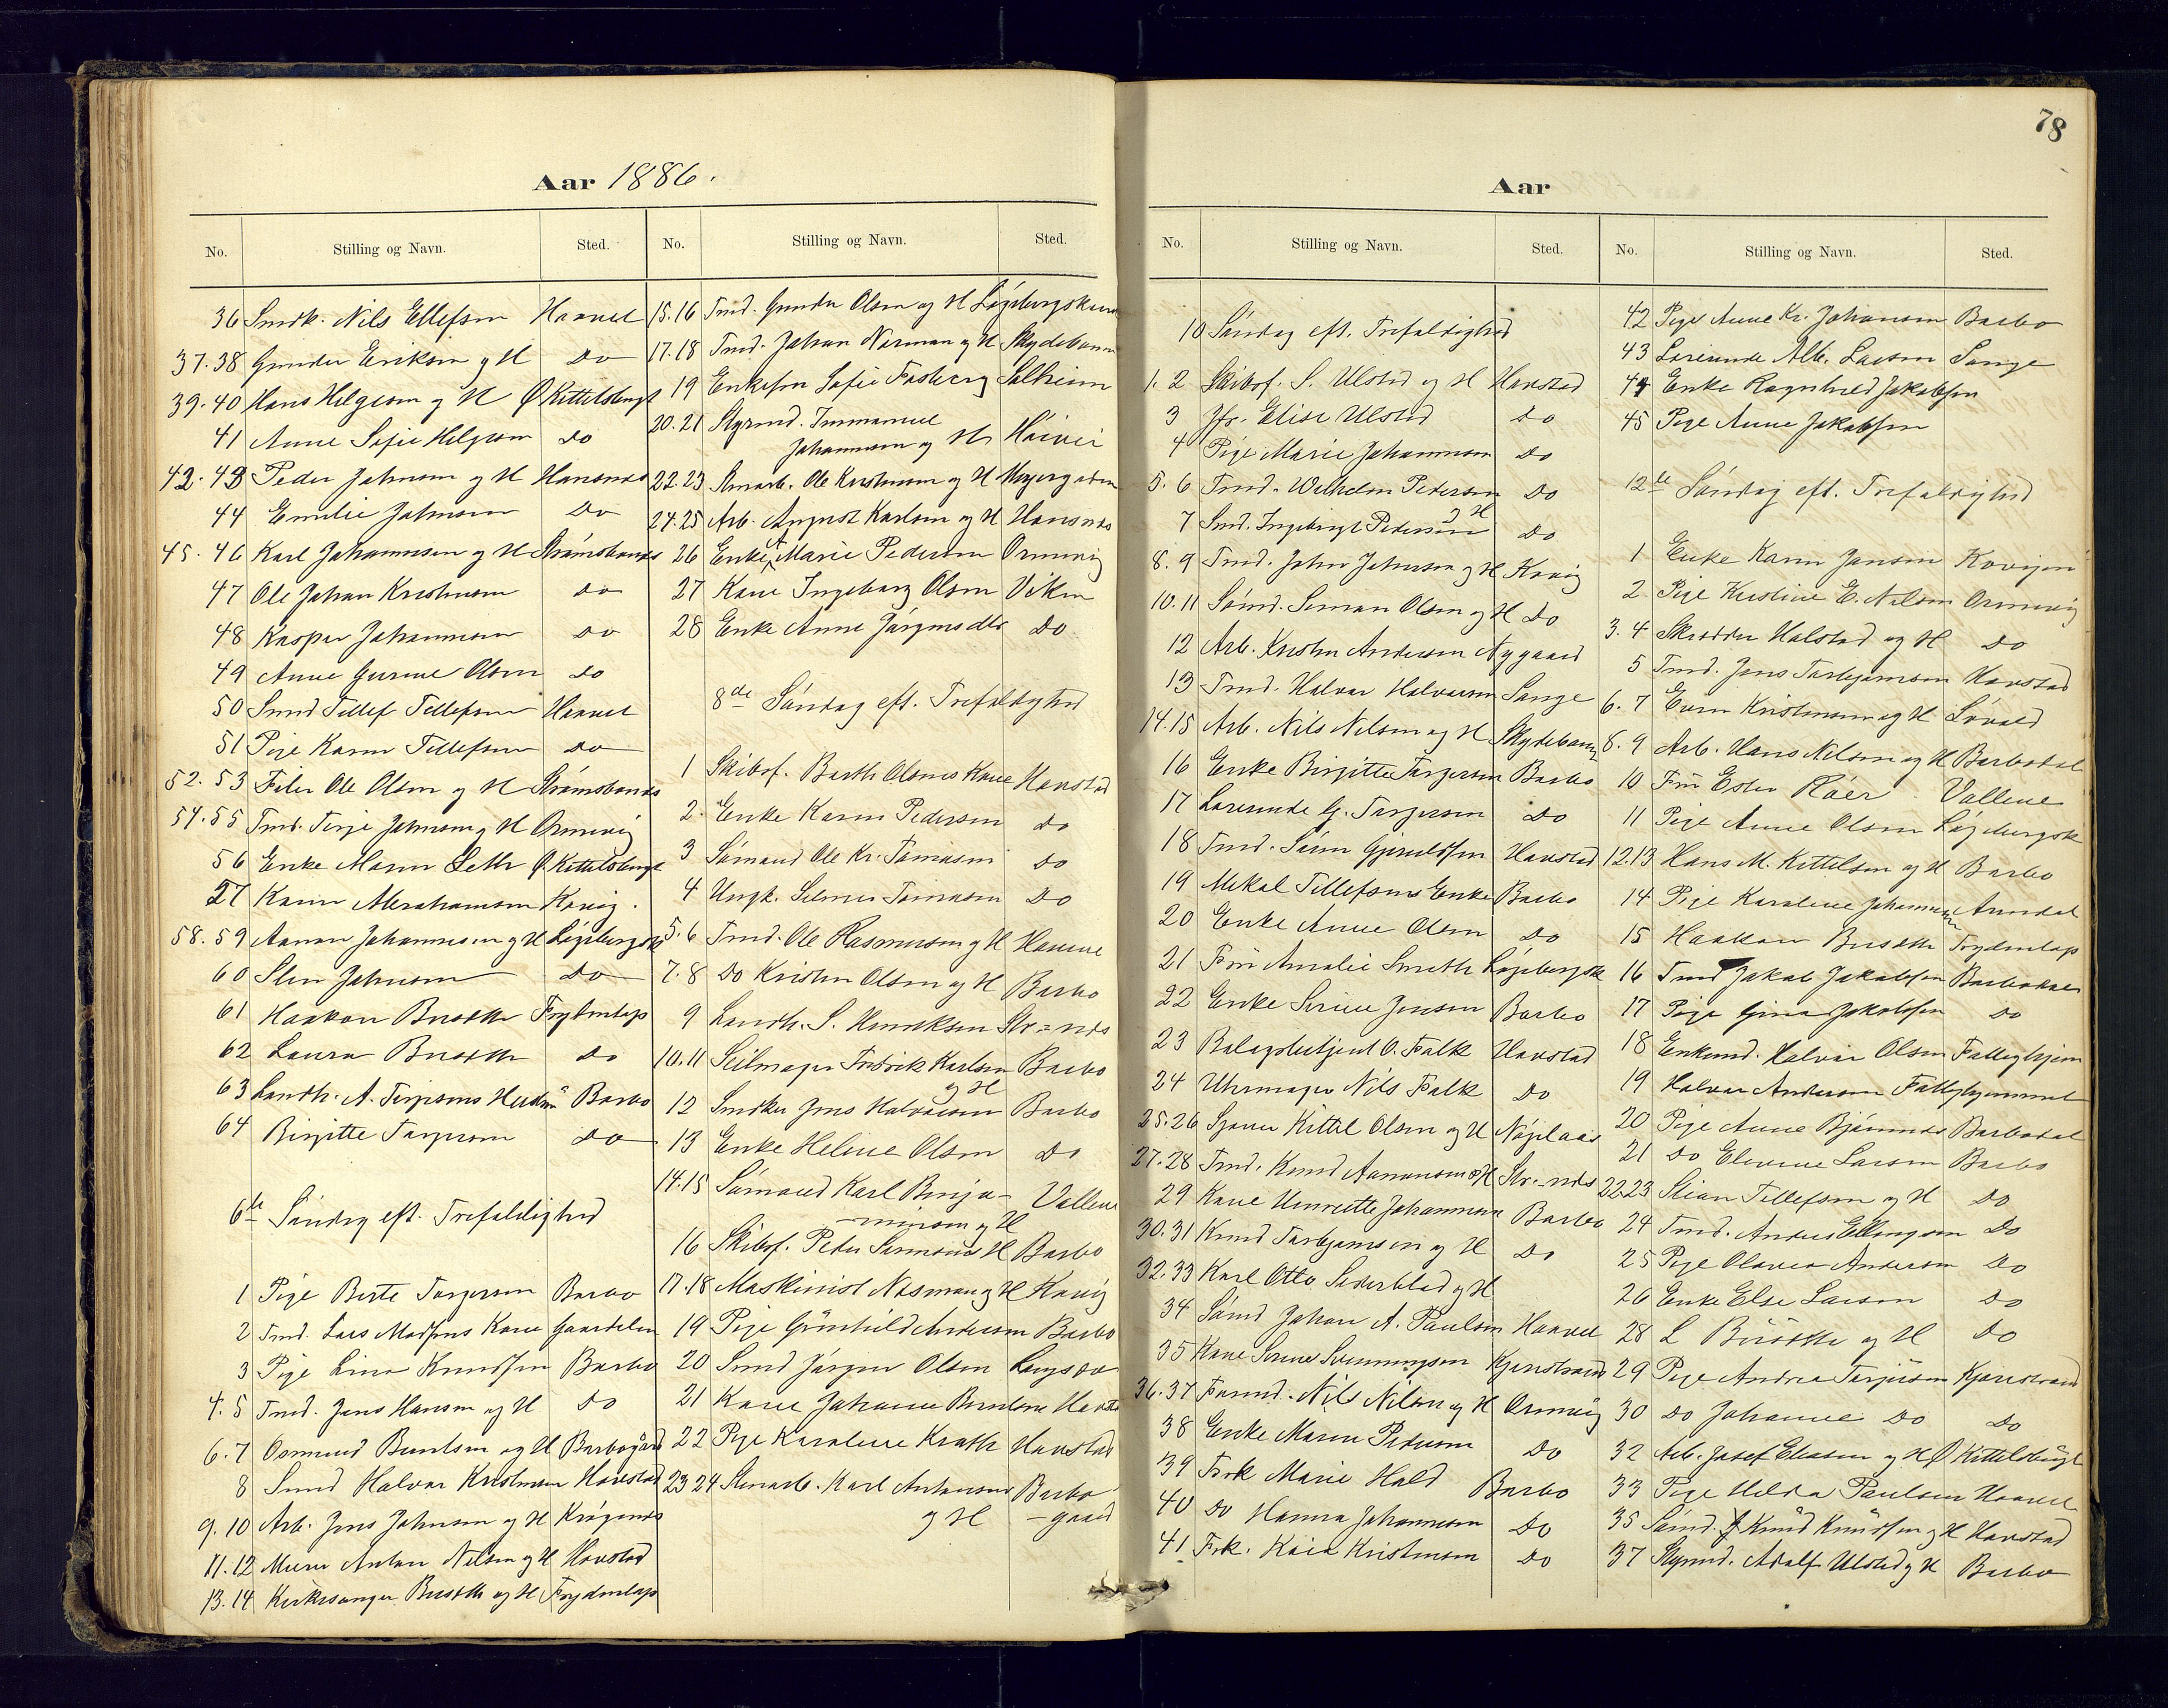 Aar 1886.
No. Stilling og Navn. Sted.
36 Smdk. Nils Ellefsen Haavet
37.38 Gunder Eriksen og H Do
39.40 Hans Helgesen og H Ø Kittelsbugt
41 Anne Sofie Helgesen Do
42.43 Peder Johnsen og H Hansnes
44 Emilie Johnsen Do
45.46 Karl Johannesen og H Strømsbunds
47 Ole Johan Kristensen Do
48 Kaspar Johannesen Do
49 Anne Gurine Olsen Do
50 Smd Tellef Tellefsen Haavet
51 Pige Karen Tellefsen Do
52.53 Ole Olsen og H Strømsbunds
54.55 Tmd. Terje Johnsen og H Ormevig
56 Enke Maren Leth Ø. Kittelsbugt
57 Karen Abrahamsen Kovig.
58.59 Aanon Johannesen og H Løgebergsk
60 Sten Johnsen Do
61 Haakon Busoth Frydenlap
62 Laura Busoth Do
63 Landh. A. Terjesens Barbo
64 Birgitte Torgersen Do
6te Søndag eft. Trefoldighed
1 Pige Berte Torgersen Barbo
2 Tmd. Lars Madsens Kone Gaardalen
3 Pige Lina Knudsen Barbo
4.5 Tmd. Jens Hansen og H Do
6.7 Osmund Berntsen og H Barbogård
8 Smd Halvor Kristensen Havstad
9.10 Arb. Jens Johnsen og H Krøgenes
11.12 Murer Anton Nilsen og H Havstad
13.14 Kirkesanger Busoth og H Frydenlap
No. Stilling og Navn. Sted.
15.16 Tmd. Gunder Olsen og H
17.18 Tmd. Johan Norman og H Skydebanen
19 Enkefru Sofie Fosberg Solheim
20.21 Styrmd. Immanuel
Johannesen og H
22.23 Ole Kristensen og H
24.25 Arb. August Karlsen og H Hansnes
26 Enke A Marie Pedersen Ormevig
27 Kone Ingeborg Olsen Viken
28 Enke Anne Jørgensdtr Do
8de Søndag eft. Trefoldighed
1 Skibsf. Barth Olsens Kone Havstad
2. Enke Karen Pedersen Do
3 Sømand Ole Kr. Tomasen Do
4 Ungk. Selmer Tomasen Do
5.6 Tmd. Ole Rasmussen og H
7.8 Do Kristen Olsen og H Barbo
9 Landh. S. Henriksen Str=nds
10.11 Seilmager Fredrik Karlsen Barbo
og H
12 Snedker Jens Halvorsen Barbo
13 Enke Helene Olsen Do
14.15 Sømand Karl Benja- Vallene
minsen og H
16 Skibsf. Peder H Barbo
17.18 Maskinist Nasman og H Kovig
19 Pige Gunhild Andersen Barbo
20 Smd Jørgen Olsen
21 Kone Johanne
22 Pige Karoline Krath Havstad
23 24 Karl Antonsen Barbo
og H -gaard
78
Aar
No. Stilling og Navn. Sted.
10 Søndag eft. Trefoldighed
1.2 Skibsf. S. Ulsted og H Havstad
3 Jfr. Elise Ulsted Do
4 Pige Marie Johannesen Do
5.6 Tmd. Wilhelm Pedersen Do
og H
7 Smd. Ingebrigt Pedersen Do
8.9 Tmd. John Johnsen og H Kovig
10.11 Sømd. Simon Olsen og H Do
12 Arb. Kristen Andersen Nygaard
13 Tmd. Halvor Halvorsen Songe
14.15 Arb. Nils Nilsen og H Skydebanen
16 Enke Birgitte Torgersen Barbo
17 Lærerinde G. Torgersen Do
18 Tmd. Søren Gjeruldsen Havstad
19 Mekal Tellefsens Enke Barbo
20 Enke Anne Olsen Do
21 Frøi Amalie Smith Løgebergsk
22 Enke Serine Jensen Barbo
23 O. Falk Havstad
24 Uhrmager Nils Falk Do
25.26 Kittel Olsen og H
27.28 Tmd. Knud Aanonsen og H Str=nds
29 Kone Henriette Johannesen Barbo
30.31 Knud Torbjørnsen og H Do
32.33 Karl Otto Sederblad og H
34 Sømd Johan A. Paulsen Haavet
35 Kone Serine Svenningsen Kjenstrand
36.37 Nils Nilsen og H Ormevig
38 Enke Maren Pedersen Do
39 Frk Marie Hald Barbo
40 Do Hanna Johannesen Do
41 Frk. Kaia Kristensen Do
No. Stilling og Navn. Sted.
42 Pige Anne Kr. Johansen Barbo
43 Lærerinde Alb. Larsen Songe
44 Enke Ragnhild Jakobsen
45 Pige Anne Jakobsen
12te Søndag eft. Trefoldighed
1 Enke Karen Jansen Kovigen
2 Pige Kristine E. Nilsen Ormevig
3.4 Skredder Halstad og H Do
5 Tmd. Jens Torbjørnsen Havstad
6.7 Even Kristensen og H
8.9 Arb. Hans Nilsen og H Barbodal
10 Frøi Ester Røer Vallene
11 Pige Anne Olsen Løgebergsk
12.13 Hans M. Kittelsen og H Barbo
14 Pige Karoline Johannesen Arendal
15 Haakon Busoth Frydenlap
16 Tmd Jakob Jakobsen Barbodal
17 Pige Gina Jakobsen Do
18 Enkemd. Halvor Olsen Fattighjem
19 Halvor Andersen Fattighjemmet
20 Pige Anne Barbodal
21 Do Elevine Larsen Barbo
22.23 Stian Tellefsen og H Do
24 Tmd. Anders Ellingsen Do
25 Pige Olavea Andersen Do
26 Enke Else Larsen Do
28 L Busoth og H Do
29 Pige Andrea Terjesen Kjenstrand
30 Do Johanne Do Do
32 Arb. Josef Eliasen og H Ø Kittelsbugt
33 Pige Helda Paulsen Haavet
35 Sømd. Knud Knudsen og H Havstad
37 Styrmd. Adolf Ulsted og H Barbo